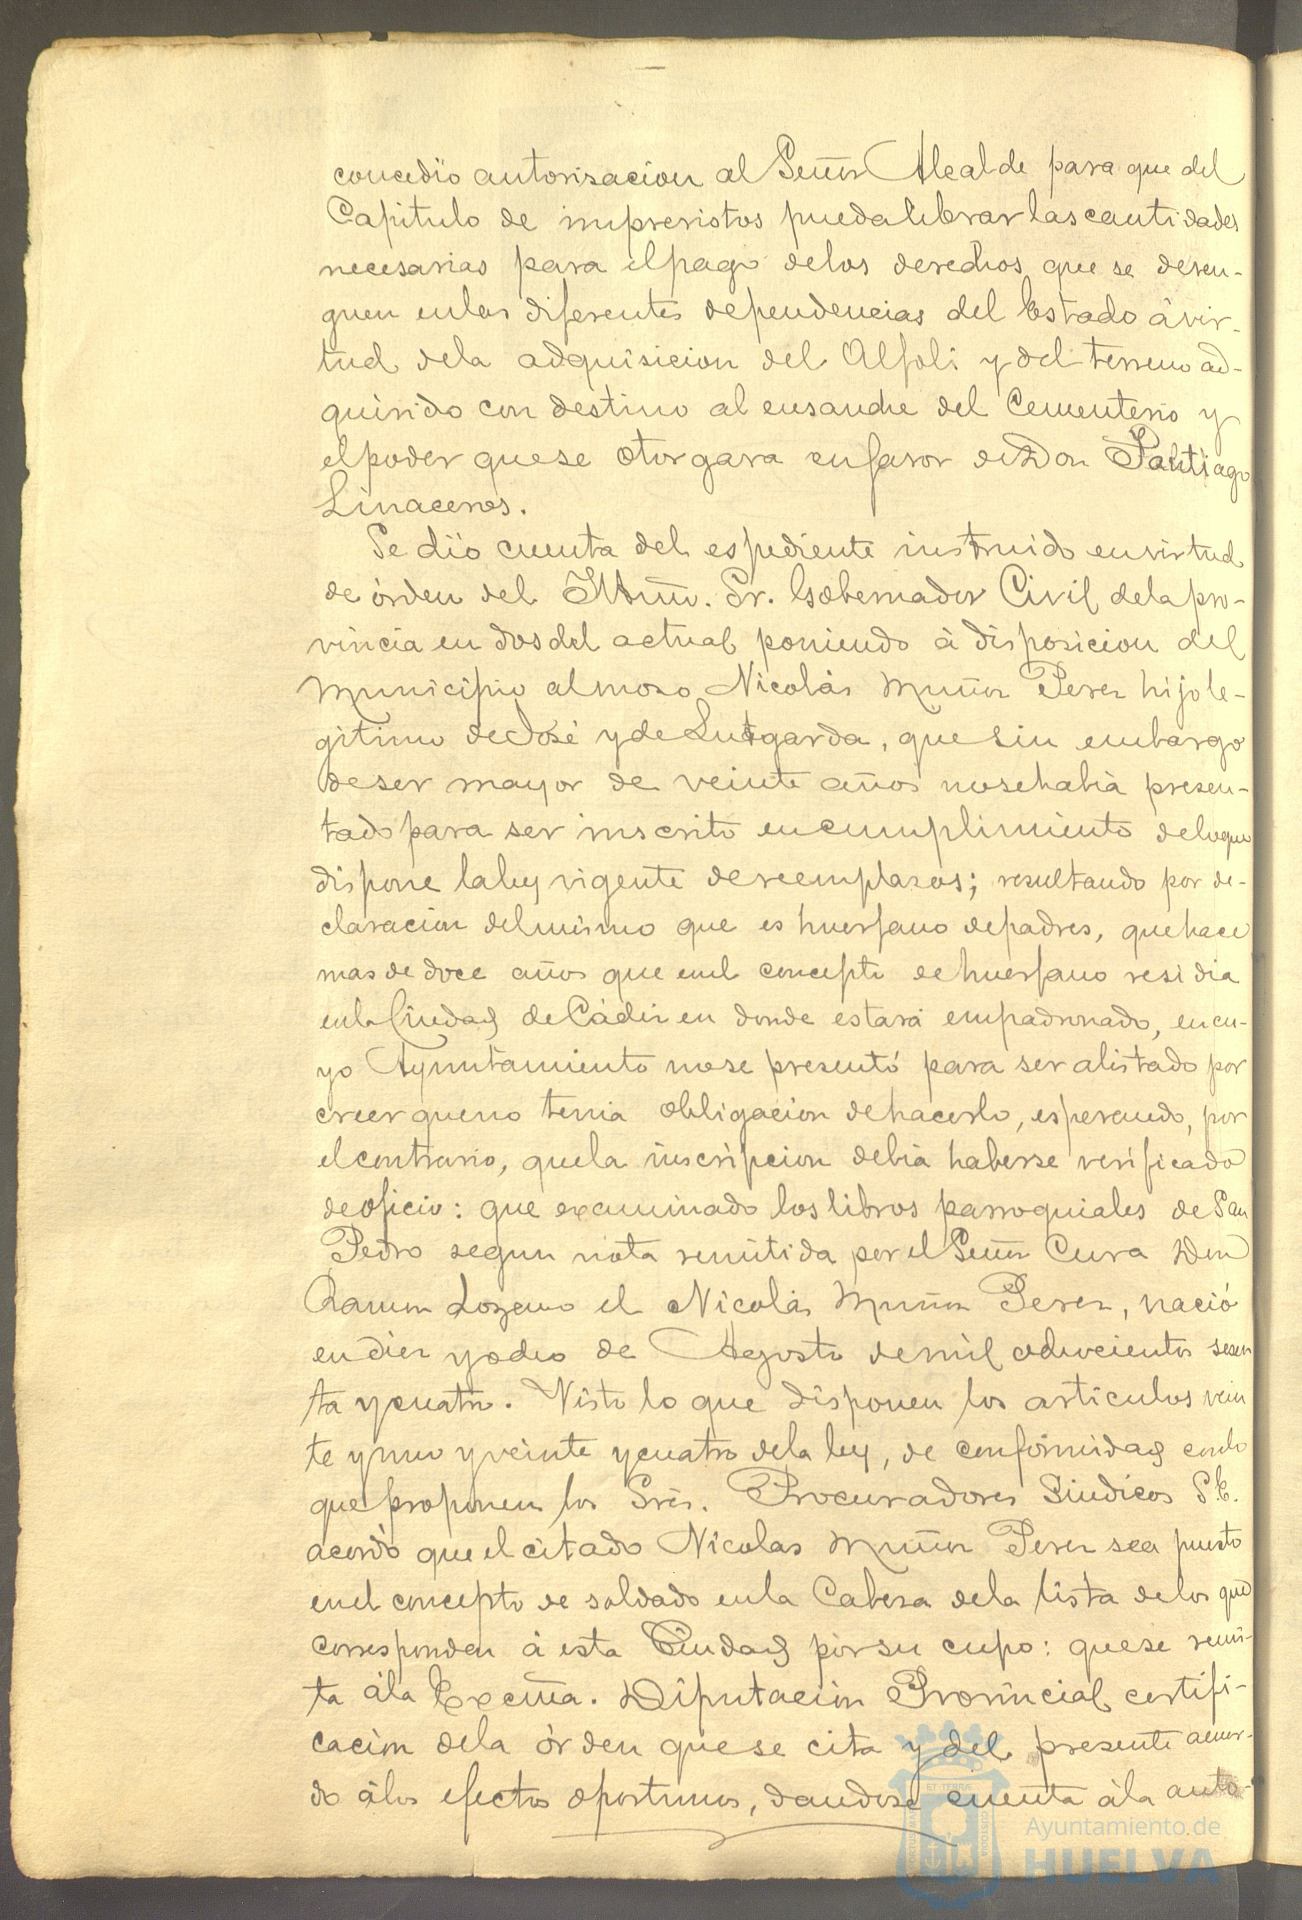 concedió autorizacion al Señor Alcalde para que del
Capitulo de imprevistos pueda librar las cantidades
necesarias para el pago delos derechos que se deven-
guen enlas diferentes dependencias del Estado á vir-
tud dela adquisicion del Alfolí y del terreno ad-
quirido con destino al ensanche del Cementerio y
el poder que se otorgara en favor de Don Santiago
Linaceros.
Se dió cuenta del espediente instruido en virtud
de órden del Iltmo. Sr. Gobernador Civil dela pro-
vincia en dos del actual poniendo á disposicion del
Municipio al moso Nicolás Muñoz Perez hijo le-
gitimo de José y de Lutgarda, que sin embargo
de ser mayor de veinte años no se habia presen-
tado para ser inscrito en cumplimiento delo que
dispone la ley vigente de reemplazos; resultando por de-
claracion del mismo que es huerfano de padres, que hace
mas de doce años que en el concepto de huerfano residia
enla Ciudad de Cádiz en donde estará empadronado, en cu-
yo Ayuntamiento no se presentó para ser alistado por
creer que no tenia obligacion de hacerlo, esperando, por
el contrario, que la inscripcion debia haberse verificado
de oficio: que examinado los libros parroquiales de San
Pedro segun nota remitida por el Señor Cura Don
Ramon Lozano el Nicolás Muñoz Perez, nació
en diez y ocho de Agosto de mil ochocientos sesen
ta y cuatro. Visto lo que disponen los articulos vein
te y uno y veinte y cuatro dela ley, de conformidad conlo
que proponen los Sres. Procuradores Sindicos S. E.
acordó que el citado Nicolas Muñoz Perez sea puesto
en el concepto de soldado enla Cabeza dela lista delos que
corresponden á esta Ciudad por su cupo: que se remi-
ta ála Excma. Diputación Provincial certifi-
cación dela órden que se cita y del presente acuer-
do álos efectos oportunos, dandose cuenta ála auto-
Ayuntamiento de
HUELVA